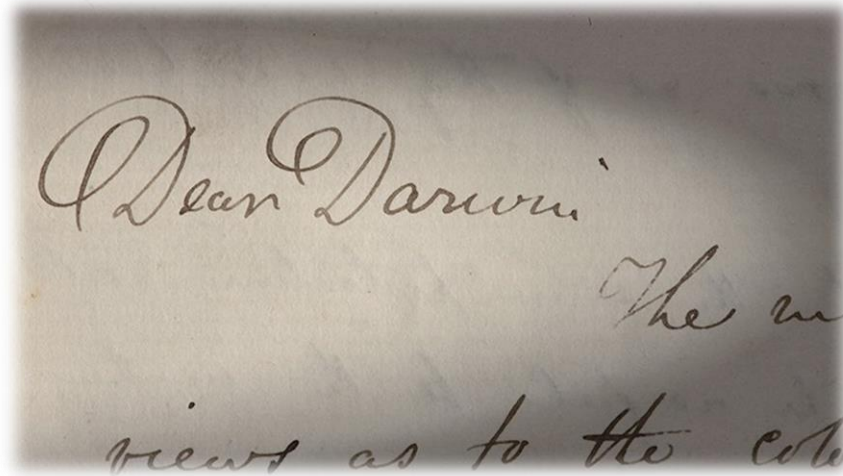 Dear Darwin
The
views as to the